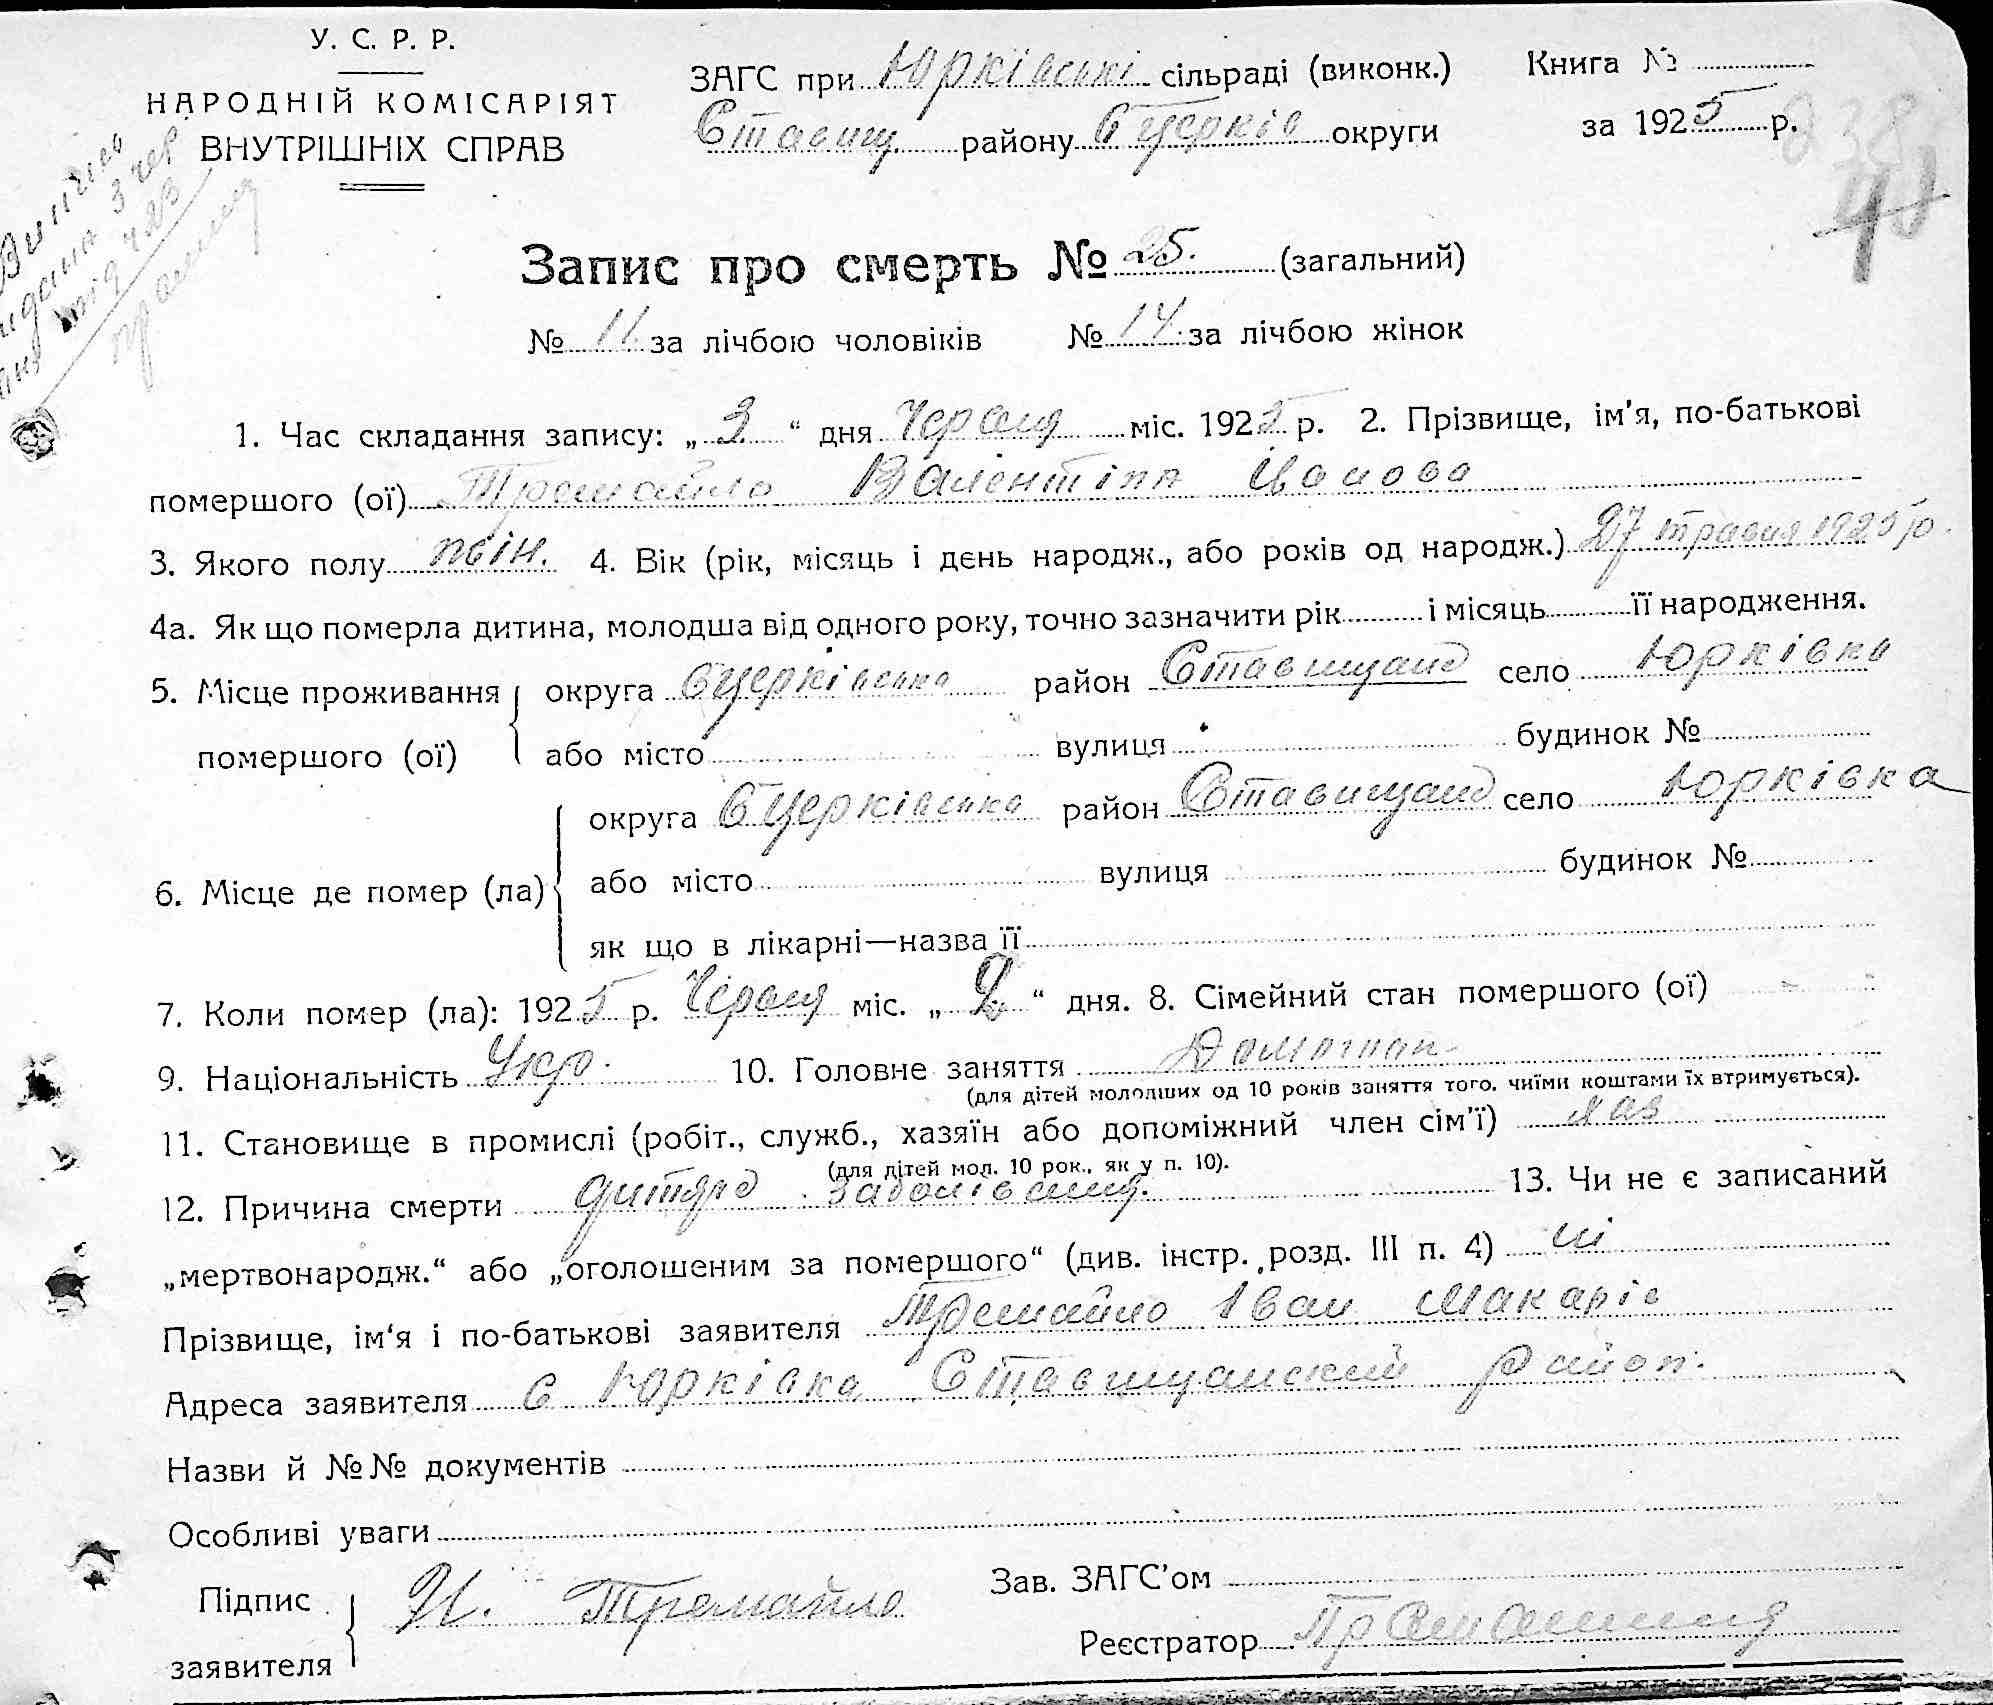 У. С. Р. Р.
НАРОДНІЙ КОМІСАРІЯТ
ВНУТРІШНІХ СПРАВ
ЗАГС при Юрківські сільраді (виконк.)
Ставищ. району Бцерків округи
Книга №
за 1925 р.
Запис про смерть № 25. (загальний)
№ 11. за лічбою чоловіків № 14. за лічбою жінок
1. Час складання запису: „ 3 “ дня Червня міс. 1925 р. 2. Прізвище, ім'я, по-батькові
помершого (ої) Тромайло Валентіна Іванова
3. Якого полу жін. 4. Вік (рік, місяць і день народж., або років од народж.) 27 травня 1925 р.
4а. Як що померла дитина, молодша від одного року, точно зазначити рік і місяць її народження.
5. Місце проживання
помершого (ої)
округа Бцерківська район Ставищанс село Юрківка
або місто вулиця будинок №
6. Місце де помер (ла)
округа Бцерківська район Ставищанс село Юрківка
або місто вулиця будинок №
як що в лікарні—назва її
7. Коли помер (ла): 1925 р. Червня міс. „ 2 “ дня. 8. Сімейний стан помершого (ої) -
9. Національність Укр. 10. Головне заняття
(для дітей молодших од 10 років заняття того, чиїми коштами їх втримується).
11. Становище в промислі (робіт., служб., хазяїн або допоміжний член сім'ї) хаз
(для дітей мол. 10 рок., як у п. 10).
12. Причина смерти дитяче заболівання. 13. Чи не є записаний
„мертвонародж.“ або „оголошеним за помершого“ (див. інстр. розд. III п. 4) ні
Прізвище, ім'я і по-батькові заявителя Тромайло Іван Макарів
Адреса заявителя с Юрківка Ставищанский район.
Назви й №№ документів
Особливі уваги
Підпис
заявителя
И. Тромайло
Зав. ЗАГС'ом
Реєстратор